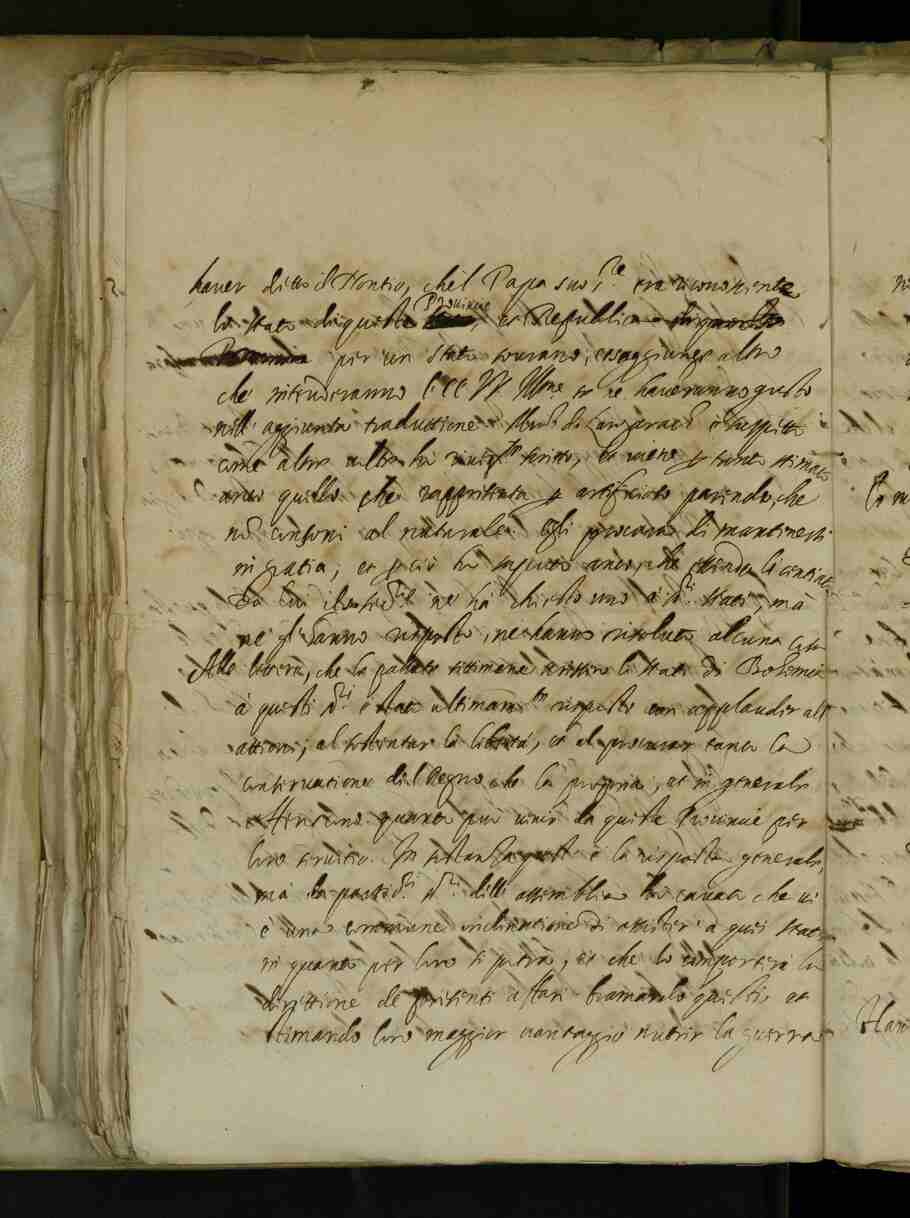 haver detto il Nontio, che'l Papa suo S.re era riconoscente
lo stato di queste Provincie, et Republica
per un stato sovrano, et saggiunge altro
che intenderanno l'EE VV Ill.me et ne haveranno gusto
nell'aggiunta traduttione. Mons.r di Langarach è sospetto
come altre volte ho scritto, et viene per tanto stimato
anco quello che rappresenta per artificioso parendo, che
non consoni al naturale. Egli procura di mantenersi
in gratia; et per ciò
da lui ne ha chiesto uno à S.ri stati, mà
nè gl'hanno risposto, ne hanno risoluto alcuna cosa
Alla lettera, che la passata settimana scrissero li stati di Bohemia
à questi S.ri è stato ultimam.te risposto con applaudir all'
attioni, al sostentar la libertà, et al procurar tanto la
conservatione del Regno che la propria, et in generale
offeriscono quanto può venir da queste Provincie per
loro servitio. In sostanza questa è la risposta generale,
mà da particolari S.ri dell'assemblea ho cavato che vi
è una commune inclinatione di assister à quei stati
in quanto per loro si potrà, et che lo comporterà la
direttione de presenti affari bramando questi, et
stimando loro maggior vantaggio nutrir la guerra